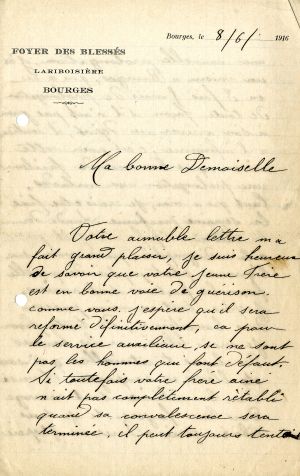 Bourges, le 8/6/ 1916
FOYER DES BLESSÉS
LARIBOISIÈRE
BOURGES
Ma bonne Demoiselle
Votre aimable lettre m'a
fait grand plaisir, je suis heureux
de savoir que votre jeune frère
est en bonne voie de guérison
comme vous. j'espère qu'il sera
reformé définitivement, ca pour
le service auxiliaire, se ne sont
pas les hommes qui font défaut.
Si toutefois votre frere aine
n'ait pas complètement rétabli
quand sa convalescence sera
terminée, il peut toujours tenter